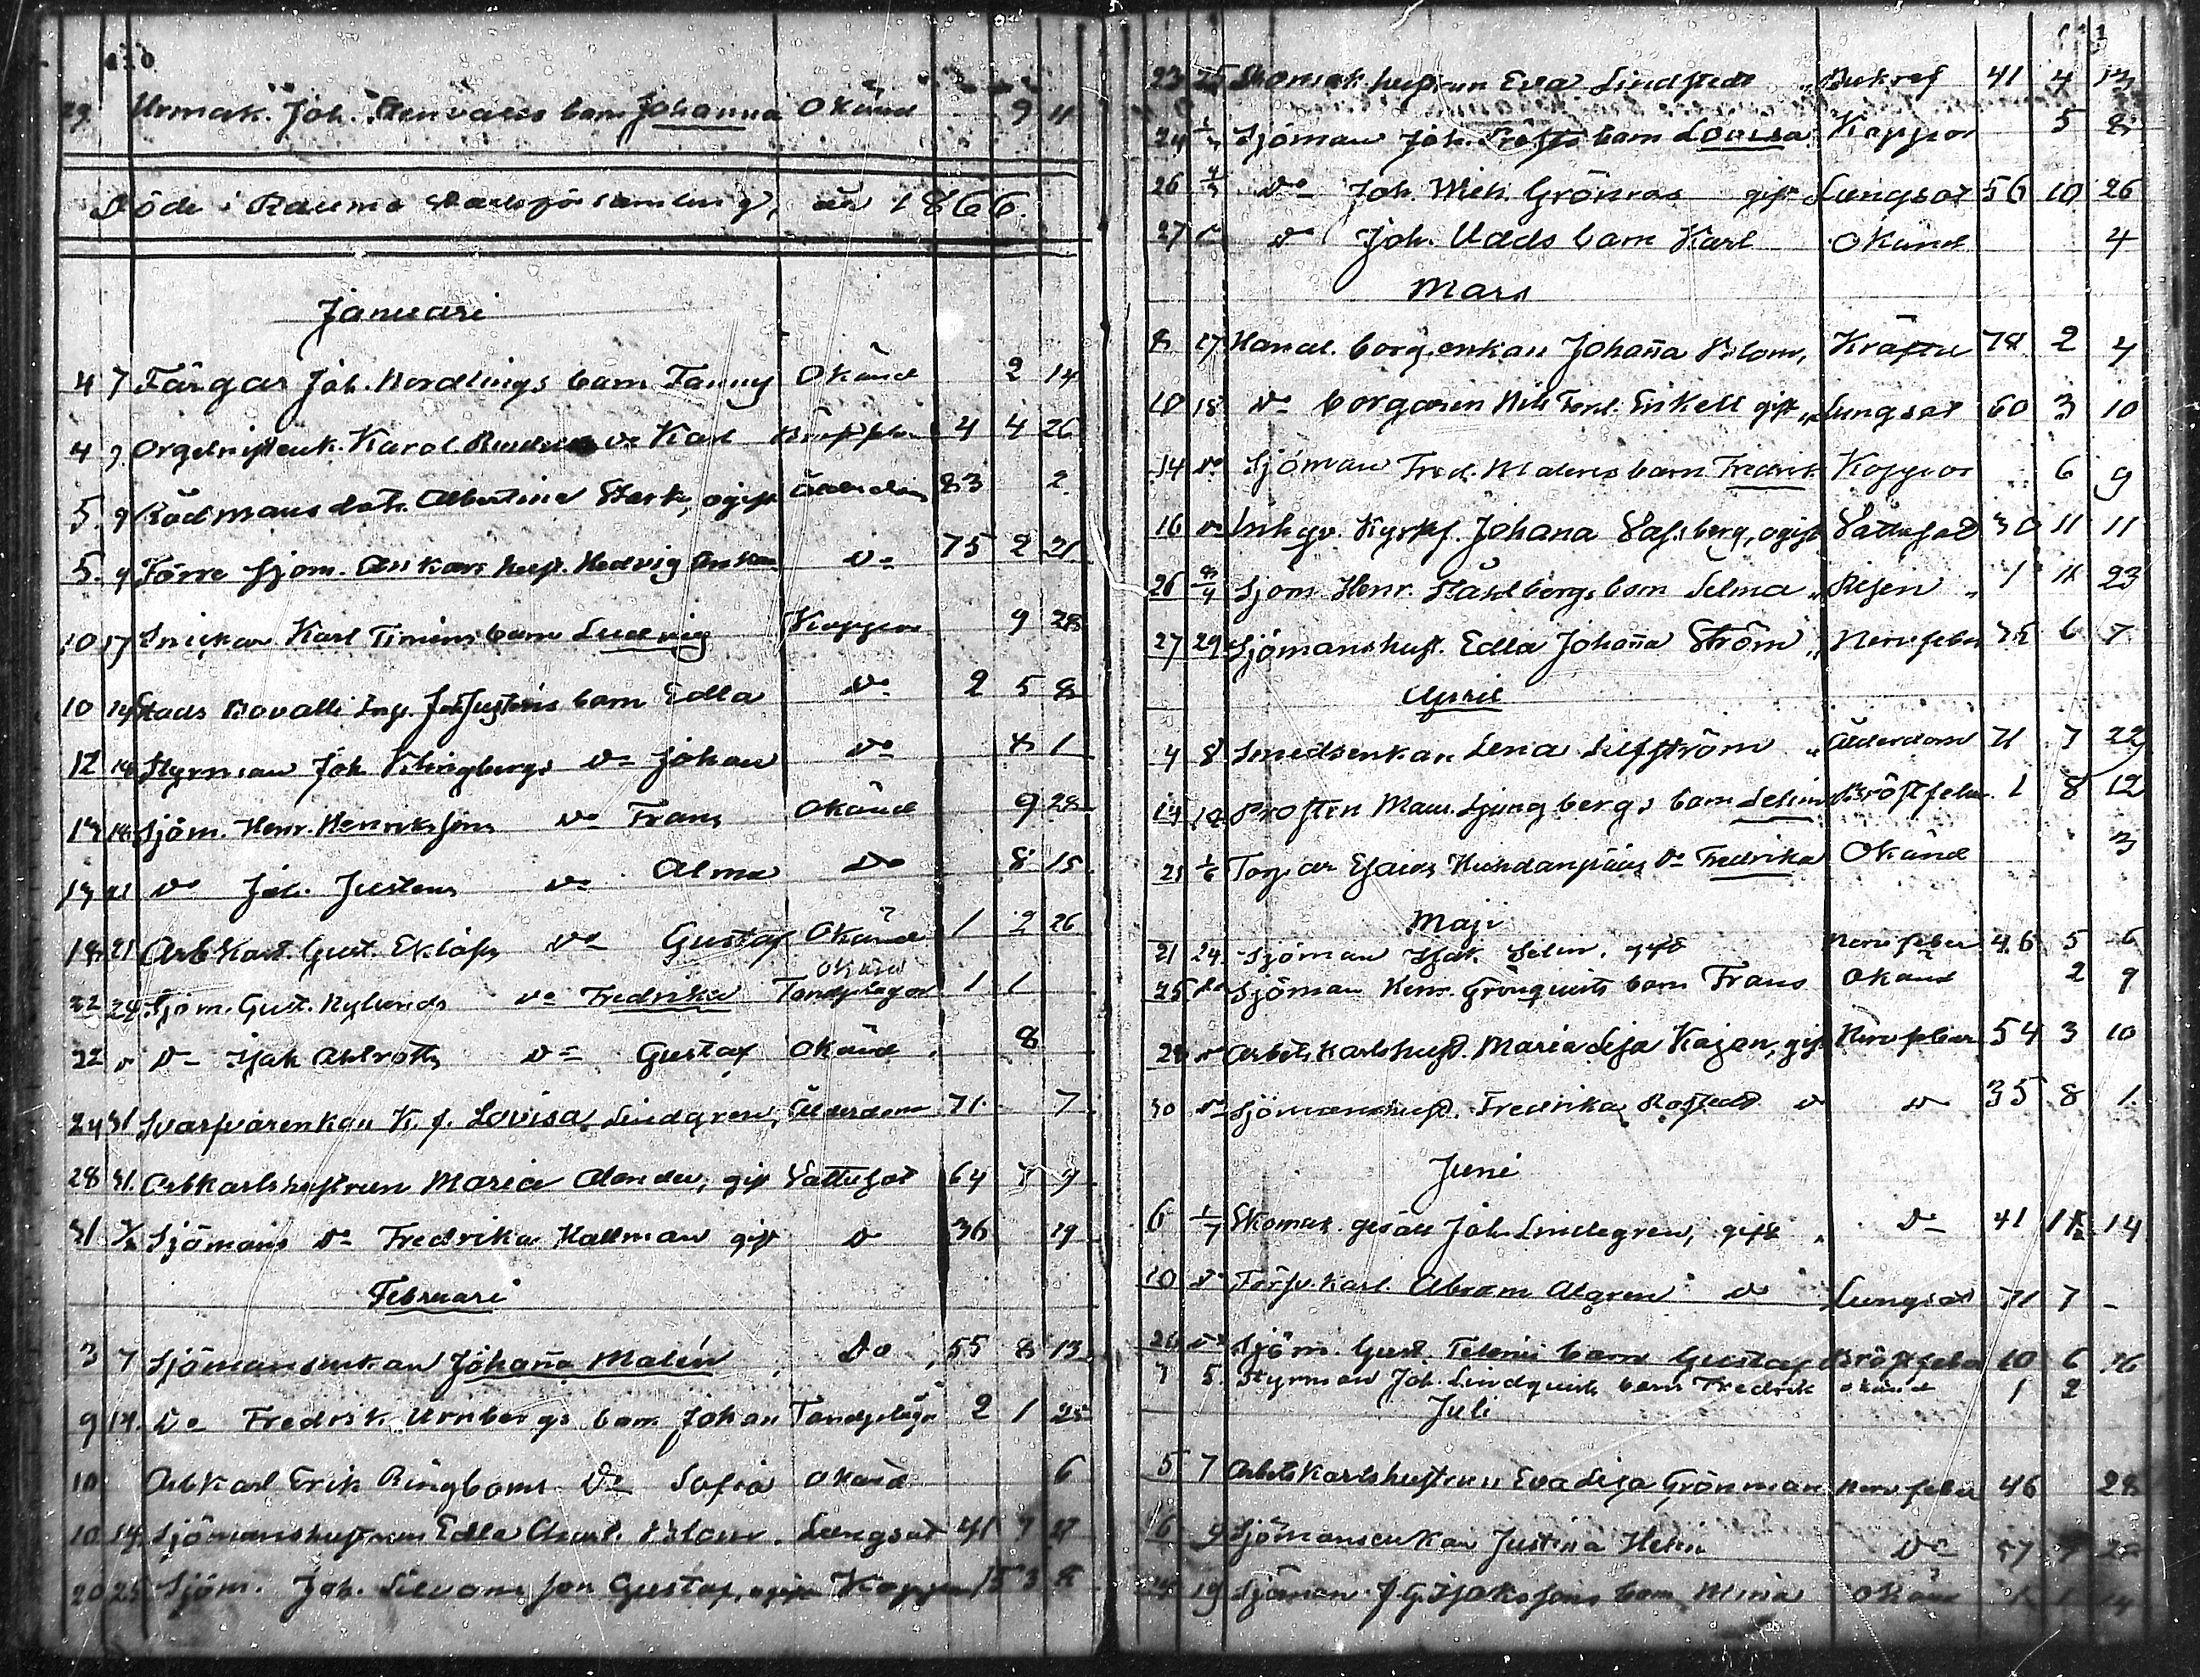 29 Urmak. Joh. Renvalls barn Johanna Okänd 9 11
Döde i Raumo Stadsförsamling, år 1866.
Januari
4 7 Färgar Joh. Nordlings barn Fanny Okänd 2 14
4 9 Orgelnistenk. Karol. do Karl 4 4 26
5 9 Rådmans dot. Albertina Stark, ogift Ålderdom 83 2
5 9 Förre sjöm. Ankars hust. Hedvig Ankar do 75 2 21
10 17 Snickar Karl barn Ludvig Koppor 9 28
10 14 Stads barn Edla do 2 5 8
12 14 Styrman Joh. Klingbergs do Johan do 8 1
13 18 Sjöm. Henr. Henrikssons do Frans Okänd 9 28
13 21 do Joh. Justens do Alma Do 8 15
18 21 Arbkarl. Gust. Eklöfs do Gustaf Okänd 1 2 26
22 24 Sjöm. Gust. Nylunds do Fredrika Okänd Tandplågor 1 1
22 do Isak Ahlroths do Gustaf Okänd 8
24 31 Svarfvarenkan K. f. Lovisa Lindgren, Ålderdom 71 7
28 31 Arbkarlshustrun Maria Alander, gift Vattusot 64 7 9
31 Sjömans do Fredrika Hallman gift do 36 19
Februari
3 7 Sjömansenkan Johaña Malén Do 55 8 13
9 14 Do Fredrik Urnbergs barn Johan Tandplågor 2 1 25
10 Arbkarl Erik Ringboms Do Sofia Okänd 6
10 14 Sjömanshustrun Edla Charl. Blom. Lungsot 41 7 27
20 25 Sjöm. Joh. son Gustaf, ogift Koppor 15 3 8
23 25 Skomak. hustrun Eva Lindstedt 41 4 13
24 1/3 Sjöman Joh. barn Lovisa Koppor 5 8
26 4/3 do Joh. Mich. Grönroos gift Lungsot 56 10 26
27 do Joh. Udds barn Karl Okänd 4
Mars
8 17 Handl. borg. enkan Johaña Blom, Kräfta 78 2 4
10 18 do borgaren Nils Enkell gift Lungsot 60 3 10
14 do Sjöman Fred. Malens barn Fredrik Koppor 6 9
16 do Inhys. Johana ogift Vattusot 30 11 11
26 8/4 Sjöm. Henr. Ståhlbergs barn Selma 1 11 23
27 29 Sjömanshust. Edla Johaña Ström Nervfeber 35 6 7
April
4 8 Smedsenkan Lena Lilfström Ålderdom 71 7 22
14 Prosten Ljungbergs barn Selim Bröstfeber 1 8 12
23 1/6 Torpar Esaias do Fredrika Okänd 3
Maji
21 24 Sjöman Isak Selin, gift Nervfeber 46 5 6
25 do Sjöman Henr. Grönquists barn Frans Okänd 2 9
28 do Arbetskarlshust. Maria Lisa Kajan, gift Nervfeber 54 3 10
30 do Sjömanshust. Fredrika do do 35 8 1
Juni
6 1/7 Skomak. gesäll Joh. Lindegren, gift do 41 11 14
10 do Karl Abram Algren do Lungsot 71 7 -
26 do Sjöm. Gust. Telenii barn Gustaf Bröstfeber 10 6 26
7 8 Styrman Joh. Lindquists barn Fredrik okänd 1 2
Juli
5 7 Arbetskarlshustrun Eva Lisa Grönman Nervfeber 46 28
6 9 Sjömansenkan Justina Helin do 57
14 19 Sjöman J. G. Isakssons barn Miina okänd 14